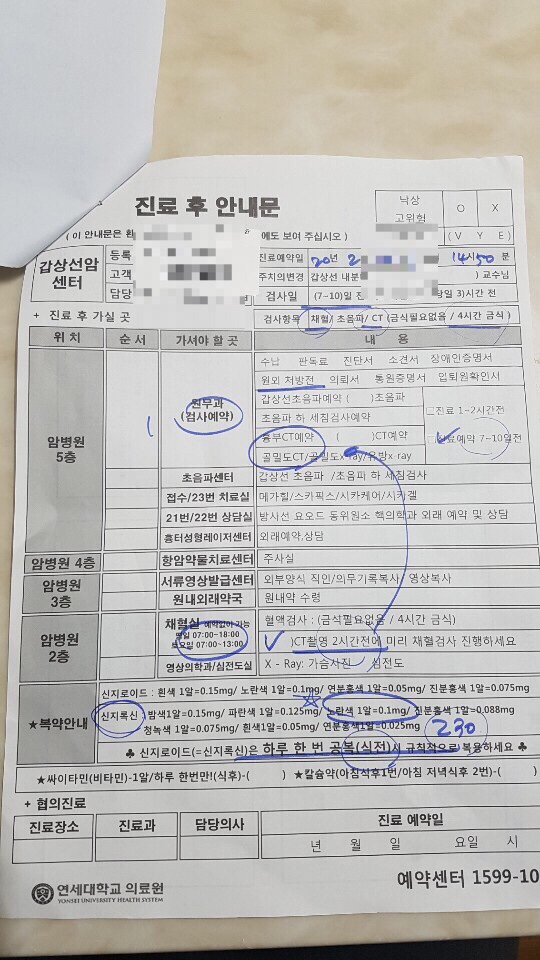 진료 후 안내문
낙상
고위험
O X
( 이 안내문은 환 에도 보여 주십시오 )
( V Y E )
갑상선암
센터
등록
고객
담당
진료예약일 20년 2 14시 50 분
주치의변경 갑상선 내분 ) 교수님
검사일 (7~10일 전 당일 3)시간 전
+ 진료 후 가실 곳
검사항목 채혈/ 초음파/ CT (금식필요없음 / 4시간 금식)
위 치 순 서 가셔야 할 곳 내 용
암병원
5층
1
원무과
(검사예약)
수납 판독료 진단서 소견서 장애인증명서
원외 처방전 의뢰서 통원증명서 입퇴원확인서
갑상선초음파예약 ( )초음파
초음파 하 세침검사예약
흉부CT예약 ( )CT예약
골밀도CT/골밀도x-ray/유방x ray
□진료 1~2시간전
□진료예약 7~10일전
초음파센터 갑상선 초음파 /초음파 하 세침검사
접수/23번 치료실 메가힐/스카픽스/시카케어/시카겔
21번/22번 상담실 방사선 요오드 동위원소 핵의학과 외래 예약 및 상담
흉터성형레이저센터 외래예약,상담
암병원 4층 항암약물치료센터 주사실
암병원
3층
서류영상발급센터 외부양식 직인/의무기록복사/ 영상복사
원내외래약국 원내약 수령
암병원
2층
채혈실 예약없이 가능
평일 07:00~18:00
토요일 07:00~13:00
혈액검사 : (금식필요없음 / 4시간 금식)
( V )CT촬영 2시간전에 미리 채혈검사 진행하세요
영상의학과/심전도실 X - Ray: 가슴사진 / 심전도
★복약안내
신지로이드 : 흰색 1알=0.15mg/ 노란색 1알=0.1mg/ 연분홍색 1알=0.05mg/ 진분홍색 1알=0.075mg
신지록신 : 밤색1알=0.15mg/ 파란색 1알=0.125mg/ 노란색 1알=0.1mg/ 진분홍색 1알=0.088mg
청녹색 1알=0.075mg/ 흰색1알=0.05mg/ 연분홍색1알=0.025mg
230
♣ 신지로이드(=신지록신)은 하루 한 번 공복(식전)시 규칙적으로 복용하세요 ♣
★싸이타민(비타민)-1알/하루 한번만!(식후)-( ) ★칼슘약(아침식후1번/아침 저녁식후 2번)-( )
+ 협의진료
진료장소 진료과 담당의사 진료 예약일
년 월 일 요일 시
연세대학교 의료원
YONSEI UNIVERSITY HEALTH SYSTEM
예약센터 1599-10